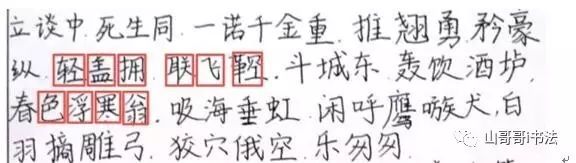 立谈中.死生同.一诺千金重.推翘勇.矜豪
纵.轻盖拥.联飞鞚.斗城东.轰饮酒垆.
春色浮寒瓮.吸海垂虹.闲呼鹰嗾犬,白
羽摘雕弓.狡穴俄空.乐匆匆.
山哥哥i书法